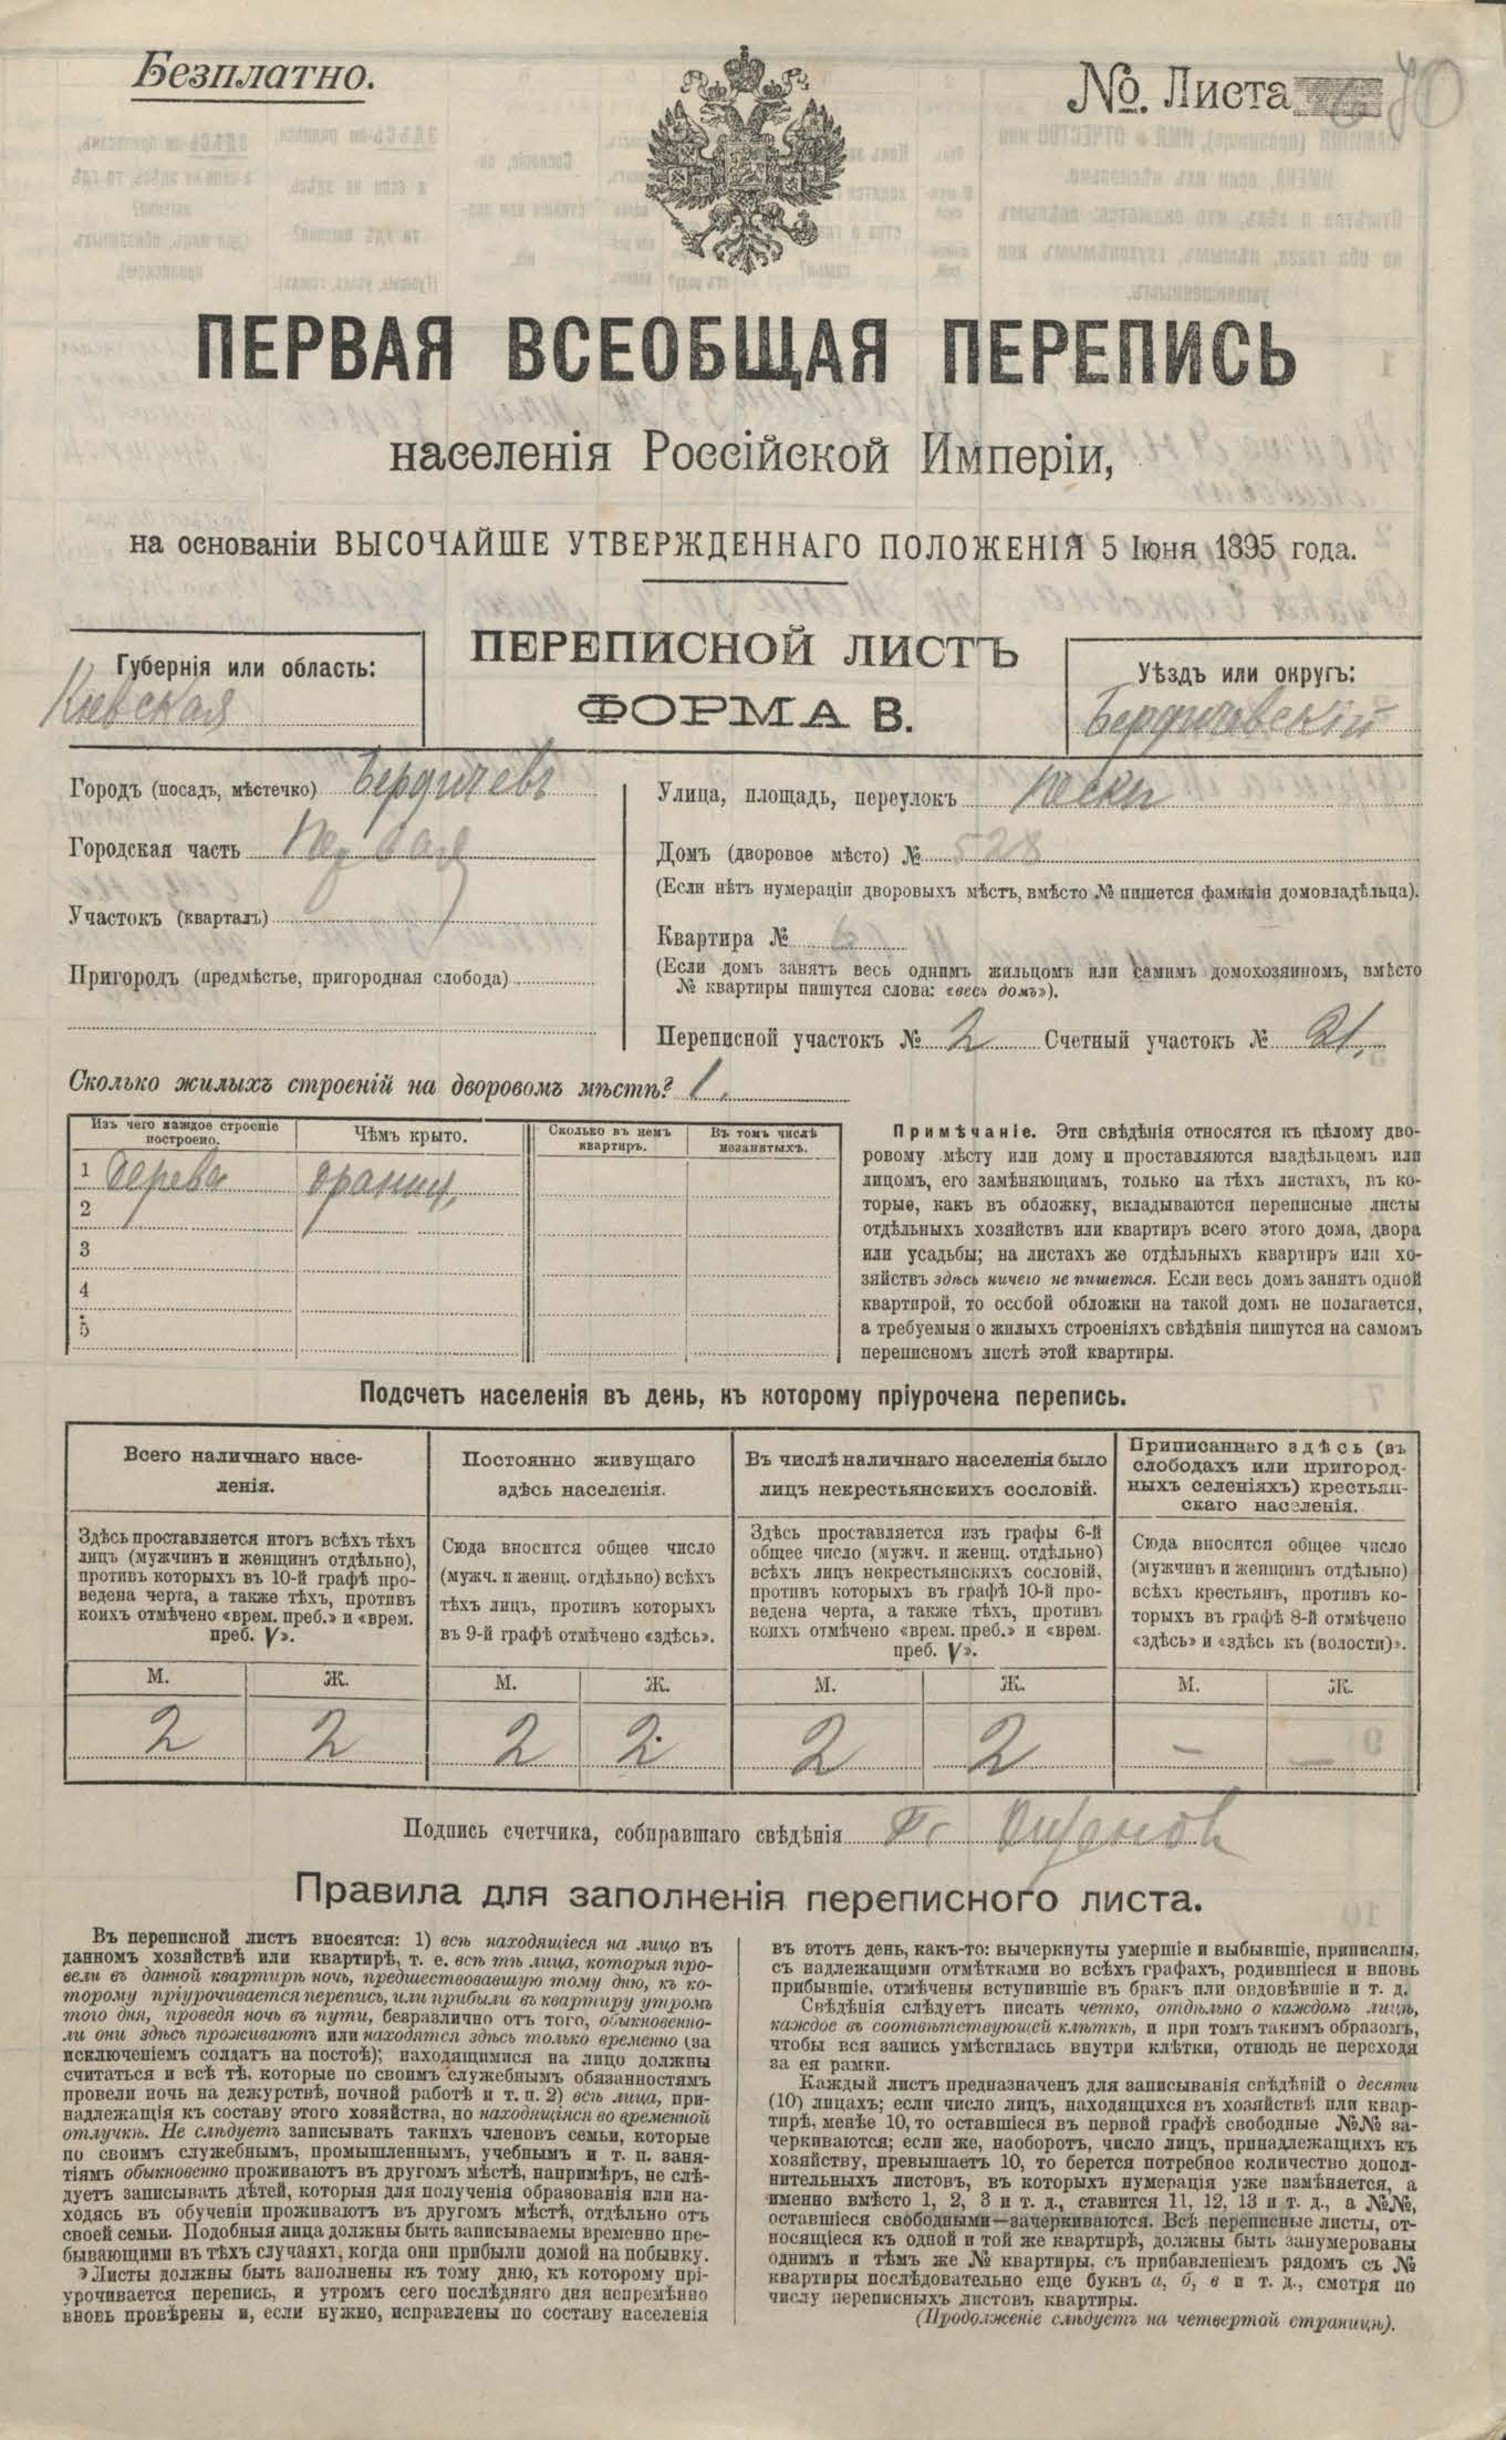 Безплатно.
№. Листа 70
ПЕРВАЯ ВСЕОБЩАЯ ПЕРЕПИСЬ
населенія Россійской Имперіи,
на основаніи ВЫСОЧАЙШЕ УТВЕРЖДЕННАГО ПОЛОЖЕНІЯ 5 Іюня 1895 года.
ПЕРЕПИСНОЙ ЛИСТЪ
ФОРМА В.
Губернія или область:
Кіевская
Уѣздъ или округъ:
Бердичевскій
Городъ (посадъ, мѣстечко) Бердичевъ
Городская часть Первая
Участокъ (кварталъ)
Пригородъ (предмѣстье, пригородная слобода)
Улица, площадь, переулокъ Пески
Домъ (дворовое мѣсто) № 528
(Если нѣтъ нумераціи дворовыхъ мѣстъ, вмѣсто № пишется фамилія домовладѣльца).
Квартира №
(Если домъ занятъ весь однимъ жильцомъ или самимъ домохозяиномъ, вмѣсто
№ квартиры пишутся слова: «весь домъ»).
Переписной участокъ № 2 Счетный участокъ № 21.
Сколько жилыхъ строеній на дворовомъ мѣстѣ? 1.
Изъ чего каждое строеніе
построено.
Чѣмъ крыто.
Сколько въ немъ
квартиръ.
Въ томъ числѣ
незанятыхъ.
1 дерева
2
3
4
5
Примѣчаніе. Эти свѣдѣнія относятся къ цѣлому дво-
ровому мѣсту или дому и проставляются владѣльцемъ или
лицомъ, его замѣняющимъ, только на тѣхъ листахъ, въ ко-
торые, какъ въ обложку, вкладываются переписные листы
отдѣльныхъ хозяйствъ или квартиръ всего этого дома, двора
или усадьбы; на листахъ же отдѣльныхъ квартиръ или хо-
зяйствъ здѣсь ничего не пишется. Если весь домъ занятъ одной
квартирой, то особой обложки на такой домъ не полагается,
а требуемыя о жилыхъ строеніяхъ свѣдѣнія пишутся на самомъ
переписномъ листѣ этой квартиры.
Подсчетъ населенія въ день, къ которому пріурочена перепись.
Всего наличнаго насе-
ленія.
Здѣсь проставляется итогъ всѣхъ тѣхъ
лицъ (мужчинъ и женщинъ отдѣльно),
противъ которыхъ въ 10-й графѣ про-
ведена черта, а также тѣхъ, противъ
коихъ отмѣчено «врем. преб.» и «врем.
преб. V».
Постоянно живущаго
здѣсь населенія.
Сюда вносится общее число
(мужч. и женщ. отдѣльно) всѣхъ
тѣхъ лицъ, противъ которыхъ
въ 9-й графѣ отмѣчено «здѣсь».
Въ числѣ наличнаго населенія было
лицъ некрестьянскихъ сословій.
Здѣсь проставляется изъ графы 6-й
общее число (мужч. и женщ. отдѣльно)
всѣхъ лицъ некрестьянскихъ сословій,
противъ которыхъ въ графѣ 10-й про-
ведена черта, а также тѣхъ, противъ
коихъ отмѣчено «врем. преб.» и «врем.
преб. V».
Приписаннаго здѣсь (въ
слободахъ или пригород-
ныхъ селеніяхъ) крестьян-
скаго населенія.
Сюда вносится общее число
(мужчинъ и женщинъ отдѣльно)
всѣхъ крестьянъ, противъ ко-
торыхъ въ графѣ 8-й отмѣчено
«здѣсь» и «здѣсь къ (волости)».
М. Ж. М. Ж. М. Ж. М. Ж.
2 2 2 2 2 2 — —
Подпись счетчика, собиравшаго свѣдѣнія
Правила для заполненія переписного листа.
Въ переписной листъ вносятся: 1) всѣ находящіеся на лицо въ
данномъ хозяйствѣ или квартирѣ, т. е. всѣ тѣ лица, которыя про-
вели въ данной квартирѣ ночь, предшествовавшую тому дню, къ ко-
торому пріурочивается перепись, или прибыли въ квартиру утромъ
того дня, проведя ночь въ пути, безразлично отъ того, обыкновенно-
ли они здѣсь проживаютъ или находятся здѣсь только временно (за
исключеніемъ солдатъ на постоѣ); находящимися на лицо должны
считаться и всѣ тѣ, которые по своимъ служебнымъ обязанностямъ
провели ночь на дежурствѣ, ночной работѣ и т. п. 2) всѣ лица, при-
надлежащія къ составу этого хозяйства, но находящіяся во временной
отлучкѣ. Не слѣдуетъ записывать такихъ членовъ семьи, которые
по своимъ служебнымъ, промышленнымъ, учебнымъ и т. п. заня-
тіямъ обыкновенно проживаютъ въ другомъ мѣстѣ, напримѣръ, не слѣ-
дуетъ записывать дѣтей, которыя для полученія образованія или на-
ходясь въ обученіи проживаютъ въ другомъ мѣстѣ, отдѣльно отъ
своей семьи. Подобныя лица должны быть записываемы временно пре-
бывающими въ тѣхъ случаяхъ, когда они прибыли домой на побывку.
Листы должны быть заполнены къ тому дню, къ которому прі-
урочивается перепись, и утромъ сего послѣдняго дня непремѣнно
вновь провѣрены и, если нужно, исправлены по составу населенія
въ этотъ день, какъ-то: вычеркнуты умершіе и выбывшіе, приписаны,
съ надлежащими отмѣтками во всѣхъ графахъ, родившіеся и вновь
прибывшіе, отмѣчены вступившіе въ бракъ или овдовѣвшіе и т. д.
Свѣдѣнія слѣдуетъ писать четко, отдѣльно о каждомъ лицѣ,
каждое въ соотвѣтствующей клѣткѣ, и при томъ такимъ образомъ,
чтобы вся запись умѣстилась внутри клѣтки, отнюдь не переходя
за ея рамки.
Каждый листъ предназначенъ для записыванія свѣдѣній о десяти
(10) лицахъ; если число лицъ, находящихся въ хозяйствѣ или квар-
тирѣ, менѣе 10, то оставшіеся въ первой графѣ свободные №№ за-
черкиваются; если же, наоборотъ, число лицъ, принадлежащихъ къ
хозяйству, превышаетъ 10, то берется потребное количество допол-
нительныхъ листовъ, въ которыхъ нумерація уже измѣняется, а
именно вмѣсто 1, 2, 3 и т. д., ставится 11, 12, 13 и т. д., а №№,
оставшіеся свободными—зачеркиваются. Всѣ переписные листы, от-
носящіеся къ одной и той же квартирѣ, должны быть занумерованы
однимъ и тѣмъ же № квартиры, съ прибавленіемъ рядомъ съ №
квартиры послѣдовательно еще буквъ а, б, в и т. д., смотря по
числу переписныхъ листовъ квартиры.
(Продолженіе слѣдуетъ на четвертой страницѣ).